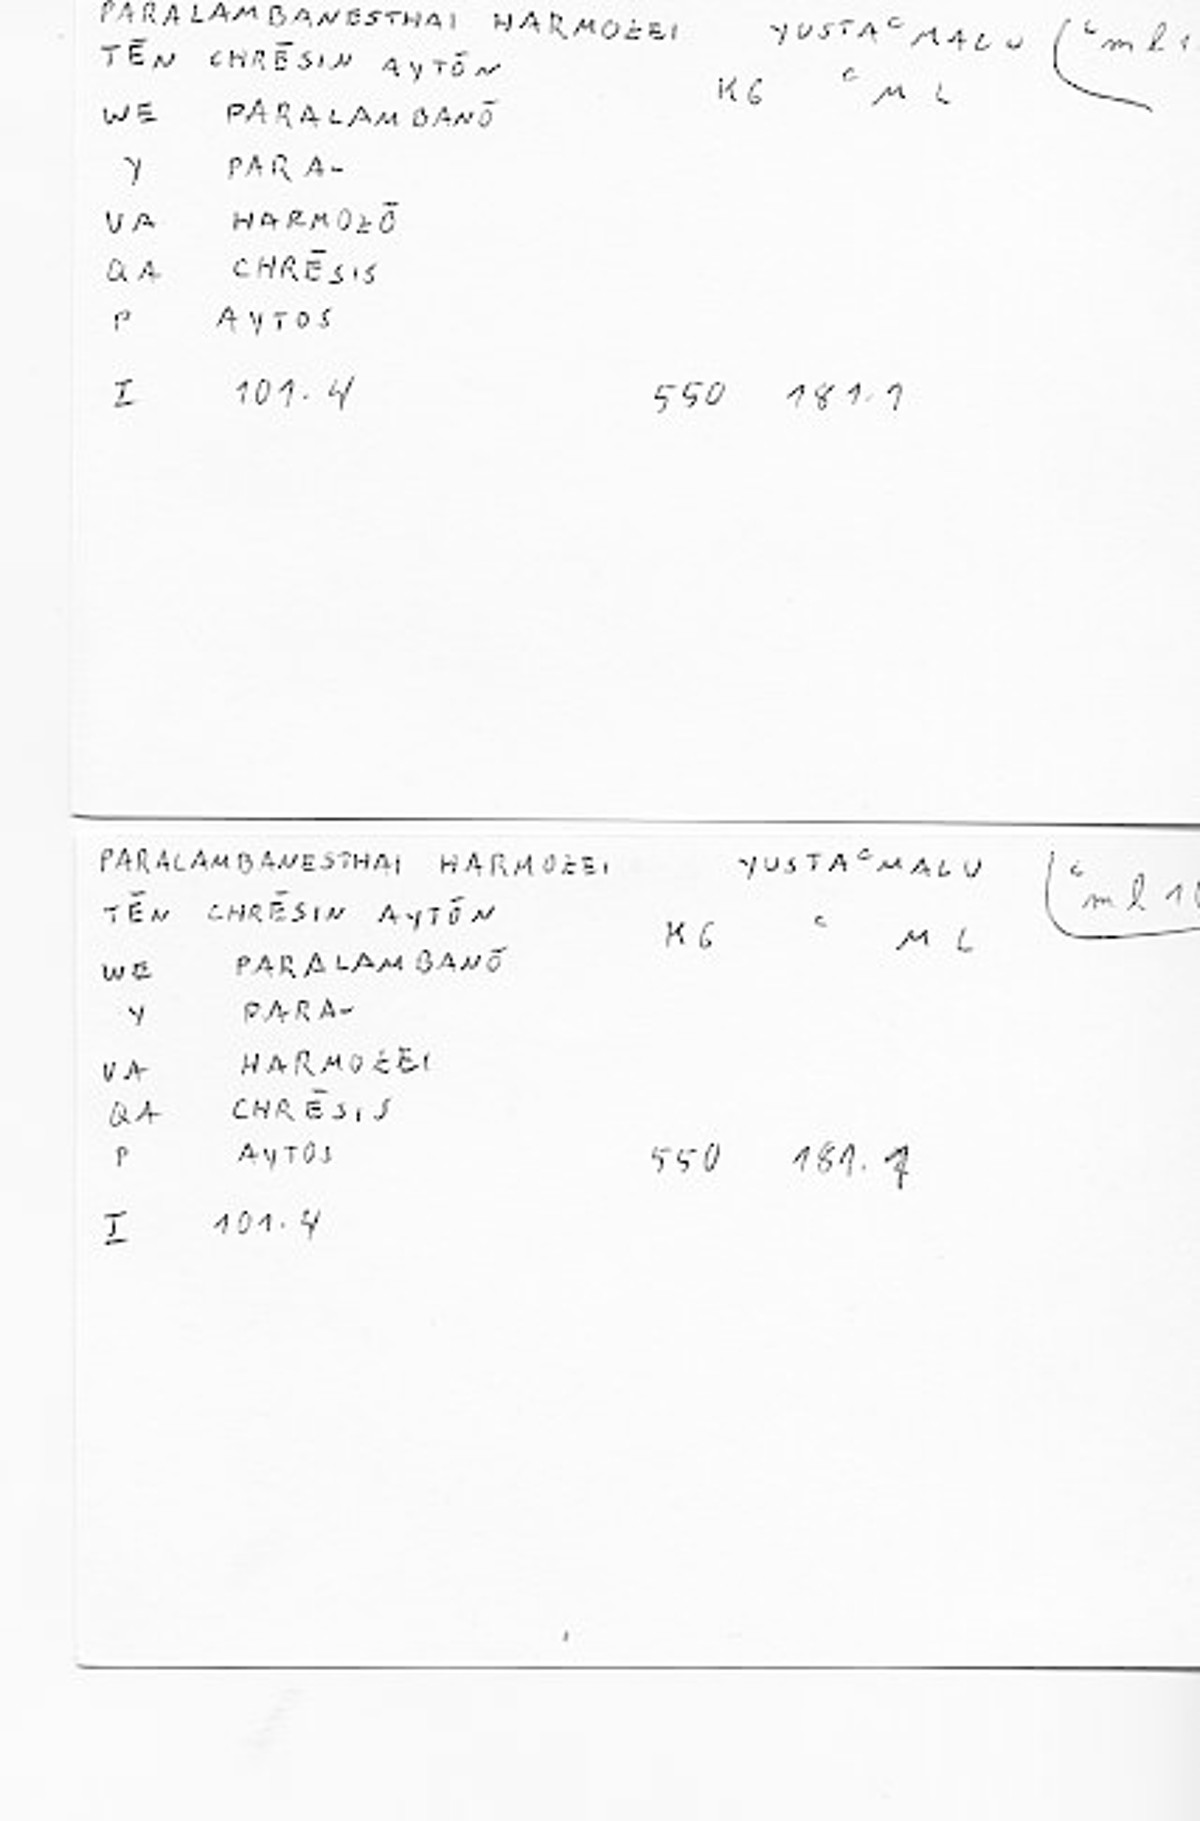 PARALAMBANESTHAI HARMOZEI YUSTAᶜMALU (ᶜml 1
TĒN CHRĒSIN AYTŌN KG ᶜML
WE PARALAMBANŌ
Y PARA-
VA HARMOZŌ
QA CHRĒSIS
P AYTOS
I 101.4 550 181.1
PARALAMBANESTHAI HARMOZEI YUSTAᶜMALU (ᶜml 10
TĒN CHRĒSIN AYTŌN KG ᶜ ML
WE PARALAMBANŌ
Y PARA-
VA HARMOZEI
QA CHRĒSIS
P AYTOS 550 181.1
I 101.4